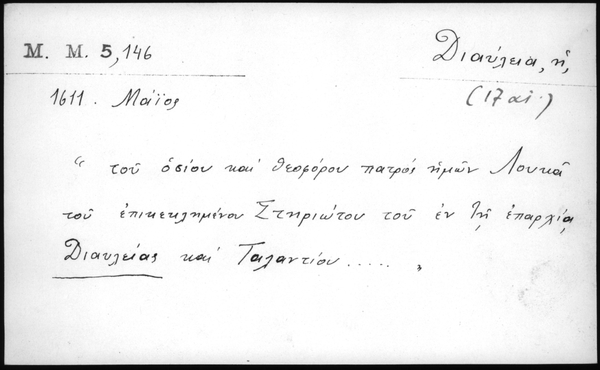 Μ. Μ. 5, 146
Διαύλεια, ἡ,
1611. Μάϊος
(17 αἰ.)
“ τοῦ ὁσίου καὶ θεοφόρου πατρός ἡμῶν Λουκᾶ
τοῦ ἐπικεκλημένου Στηριώτου τοῦ ἐν τῇ ἐπαρχίᾳ
Διαυλείας καὶ Ταλαντίου ..... „